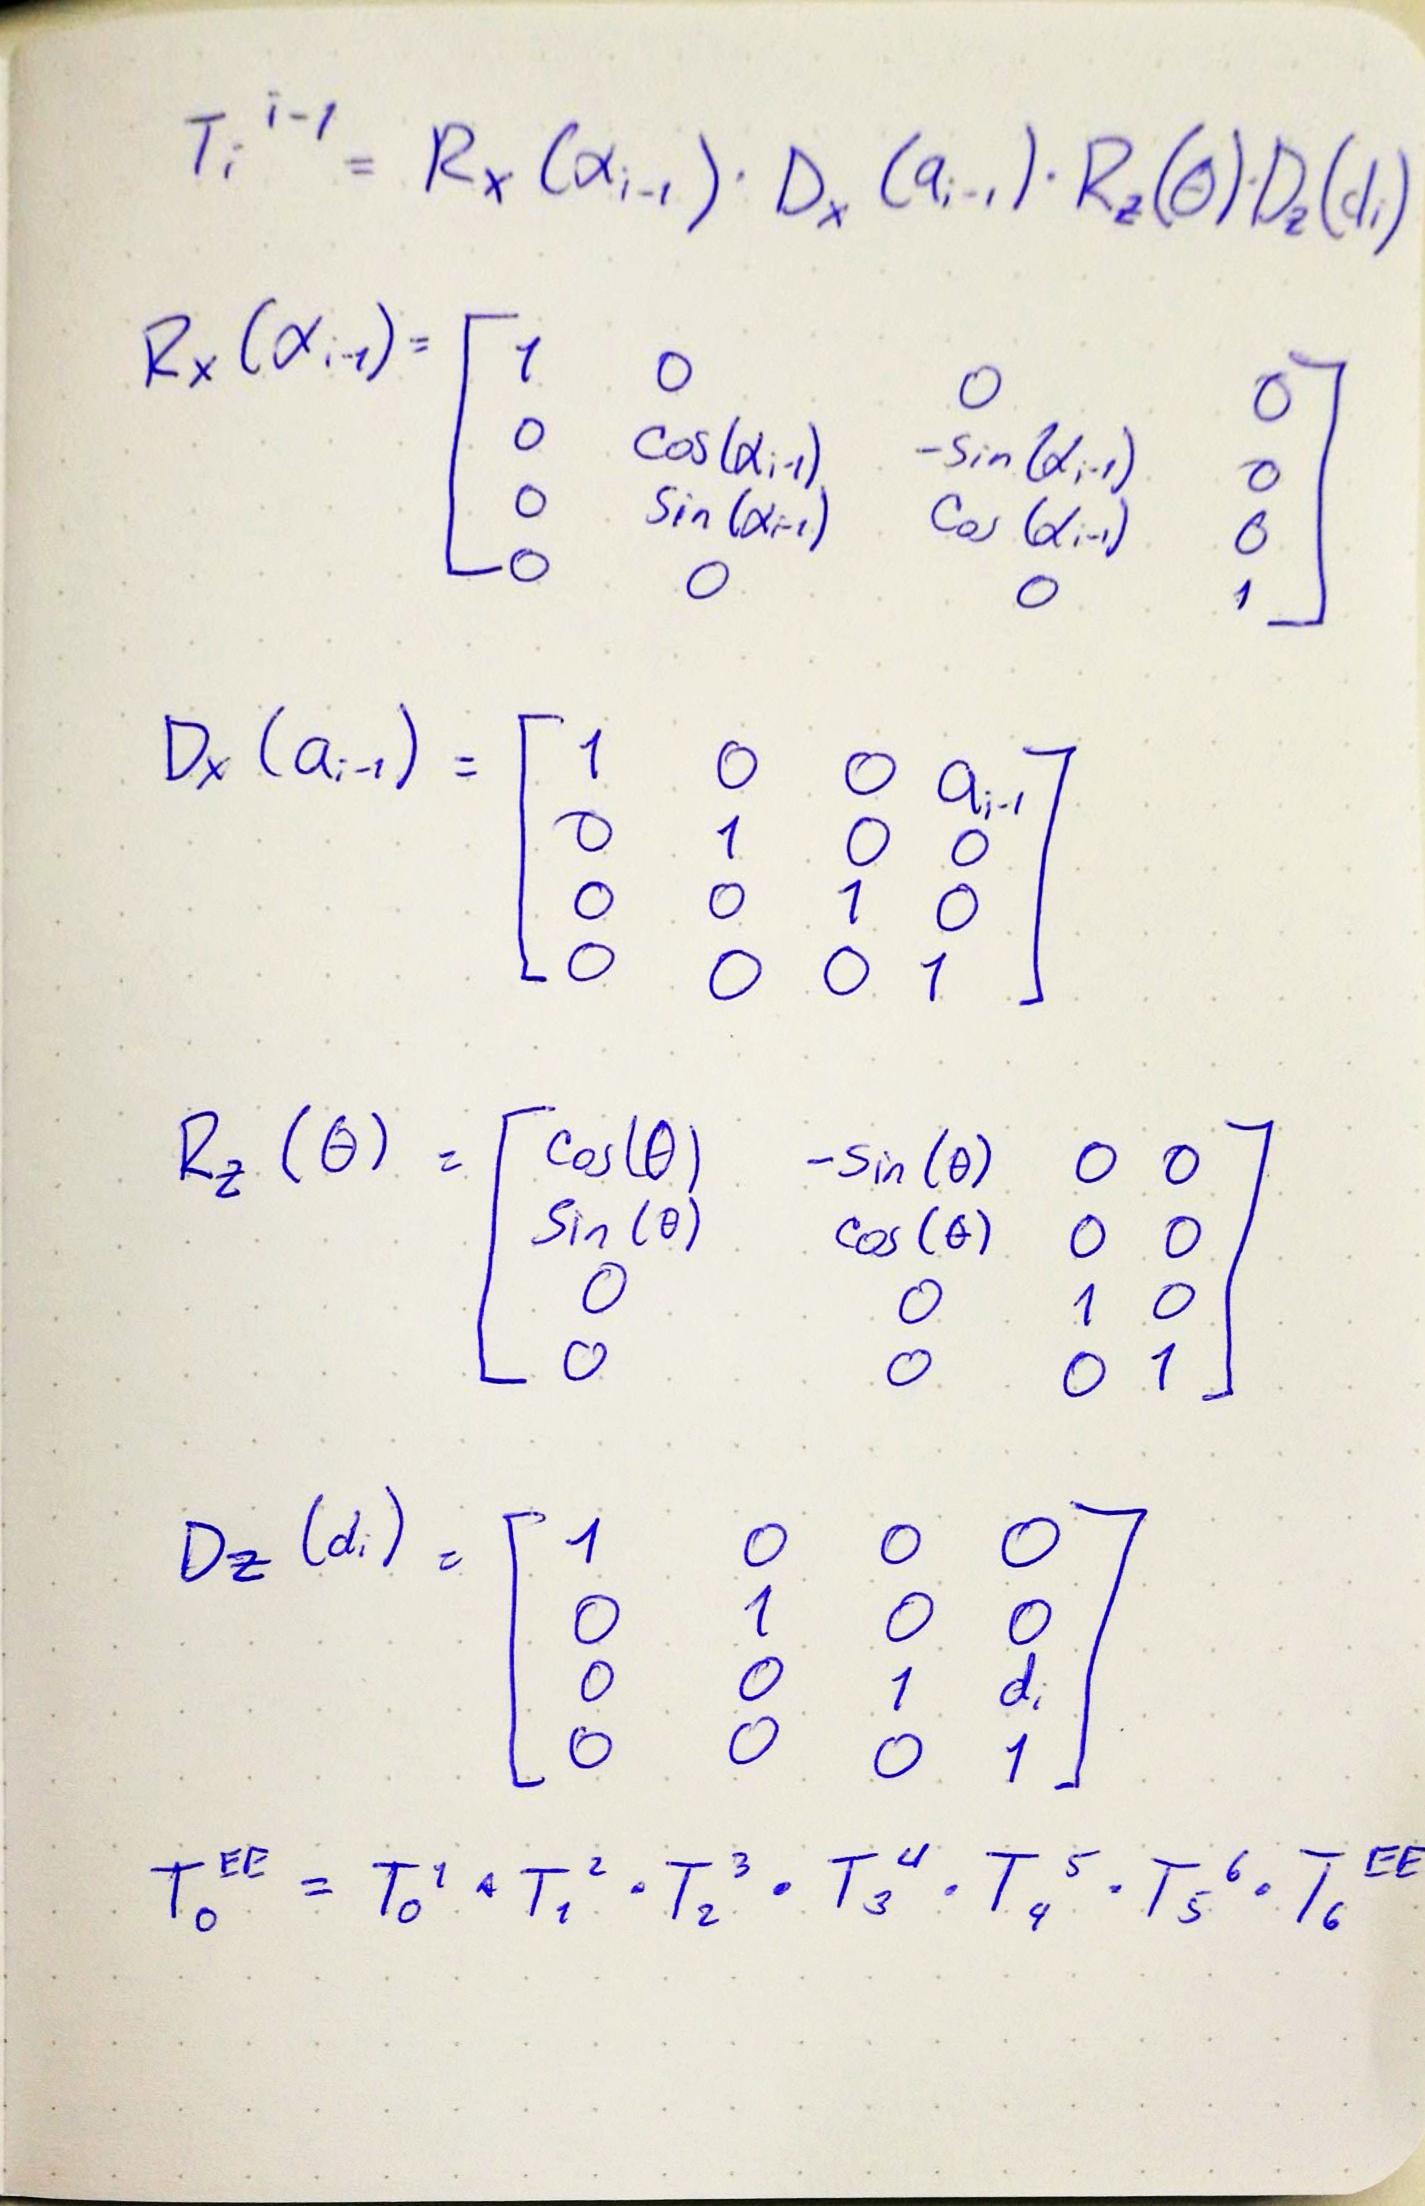 T_i^{i-1} = R_x(α_{i-1}) · D_x(a_{i-1}) · R_z(θ) · D_z(d_i)
R_x(α_{i-1}) = [ 1 0 0 0
0 cos(α_{i-1}) -sin(α_{i-1}) 0
0 sin(α_{i-1}) cos(α_{i-1}) 0
0 0 0 1 ]
D_x(a_{i-1}) = [ 1 0 0 a_{i-1}
0 1 0 0
0 0 1 0
0 0 0 1 ]
R_z(θ) = [ cos(θ) -sin(θ) 0 0
sin(θ) cos(θ) 0 0
0 0 1 0
0 0 0 1 ]
D_z(d_i) = [ 1 0 0 0
0 1 0 0
0 0 1 d_i
0 0 0 1 ]
T_0^{EE} = T_0^1 · T_1^2 · T_2^3 · T_3^4 · T_4^5 · T_5^6 · T_6^{EE}